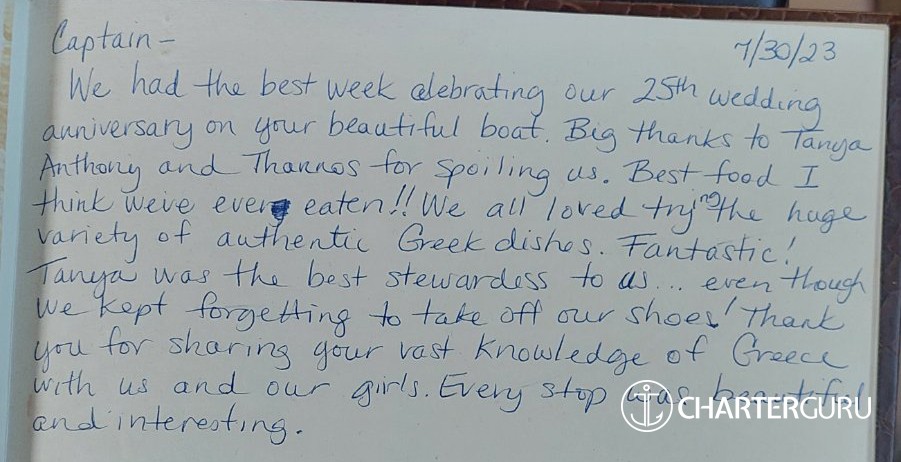 Captain - 7/30/23
We had the best week celebrating our 25th wedding
anniversary on your beautiful boat. Big thanks to Tanya
Anthony and Thannos for spoiling us. Best food I
think we've ever eaten!! We all loved trying the huge
variety of authentic Greek dishes. Fantastic!
Tanya was the best stewardess to us... even though
we kept forgetting to take off our shoes! Thank
you for sharing your vast knowledge of Greece
with us and our girls. Every stop was beautiful
and interesting.
CHARTERGURU